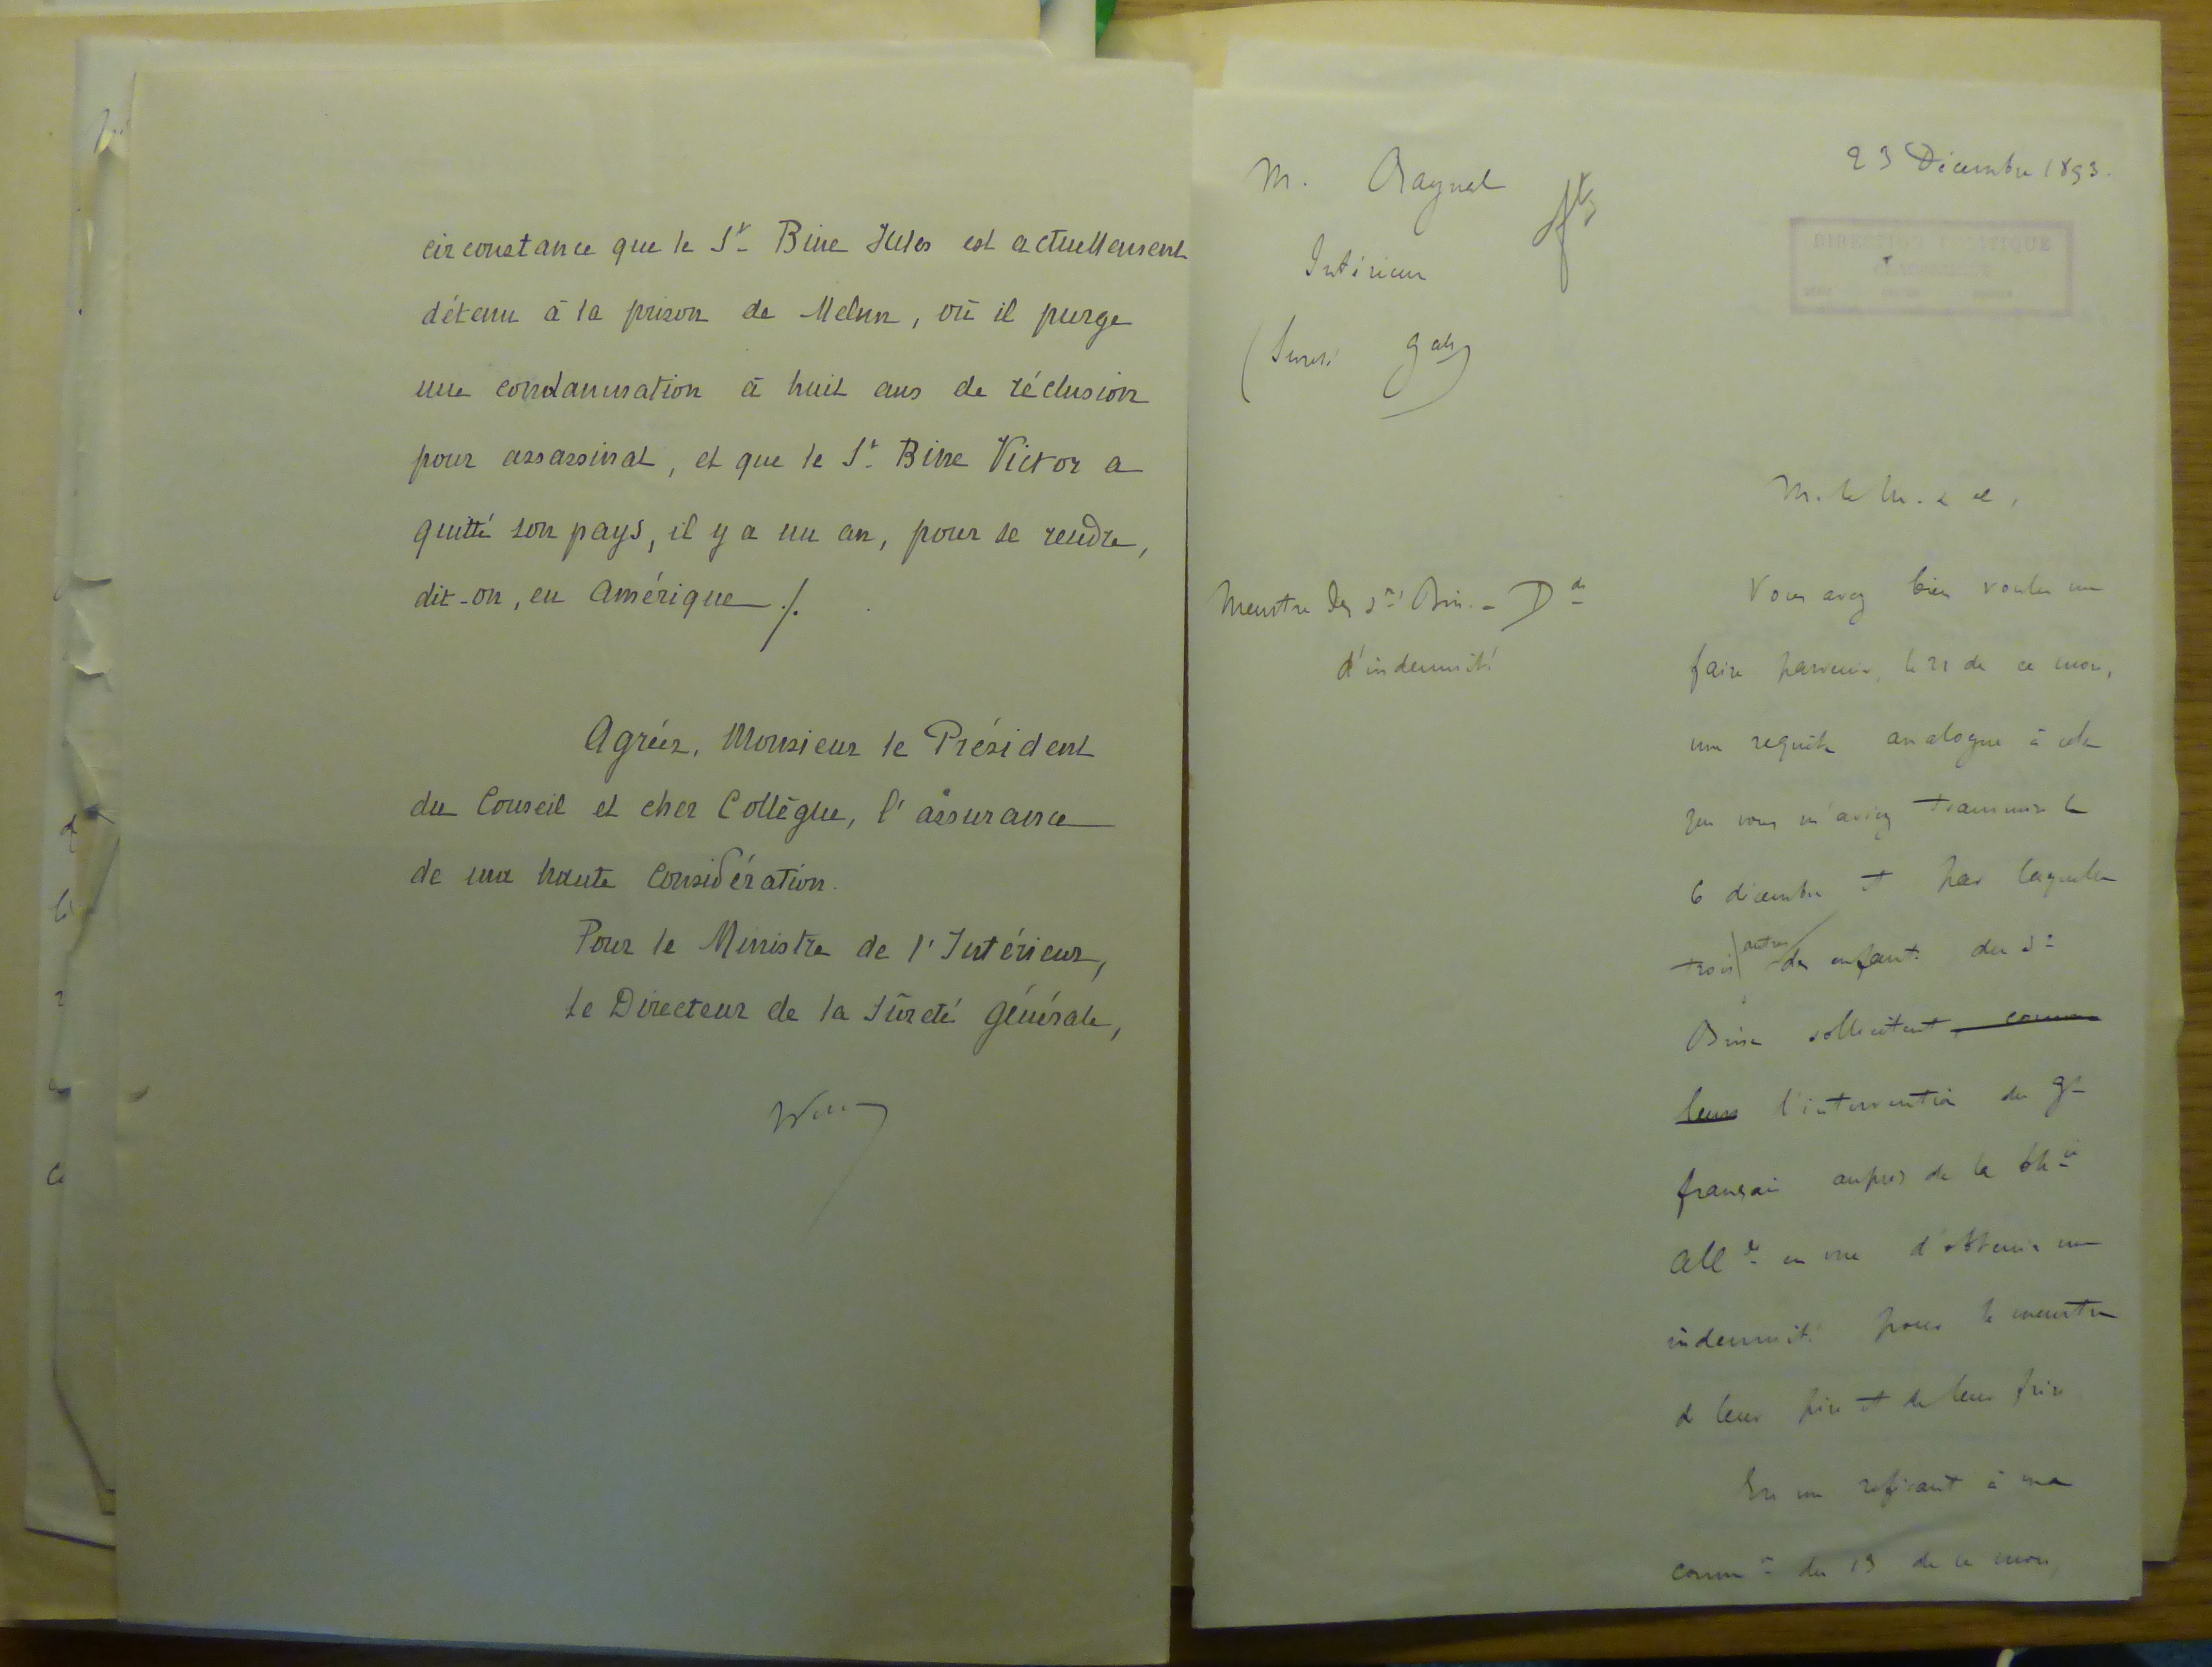 circonstance que le Sr Bine Jules est actuellement
détenu à la prison de Melun, où il purge
une condamnation à huit ans de réclusion
pour assassinat, et que le Sr Bine Victor a
quitté son pays, il y a un an, pour se rendre,
dit-on, en Amérique ./.
Agréez, Monsieur le Président
du Conseil et cher Collègue, l'assurance
de ma haute Considération.
Pour le Ministre de l'Intérieur,
Le Directeur de la Sûreté Générale,
23 Décembre 1893.
M. Raynal
Intérieur
(Sureté Gale)
DIRECTION POLITIQUE
M. le M. & c.
Meurtre des Srs Bin. - Dde
d'indemnité
Vous avez bien voulu me
faire parvenir, le 21 de ce mois,
une requête analogue à celle
que vous m'aviez transmise le
6 décembre et par laquelle
trois autres des enfants du Sr
Bine sollicitent comme
leurs l'intervention du gt
français auprès de la
Allde en vue d'obtenir une
indemnité pour le meurtre
de leur père et de leur frère
En me référant à ma
common du 13 de ce mois,